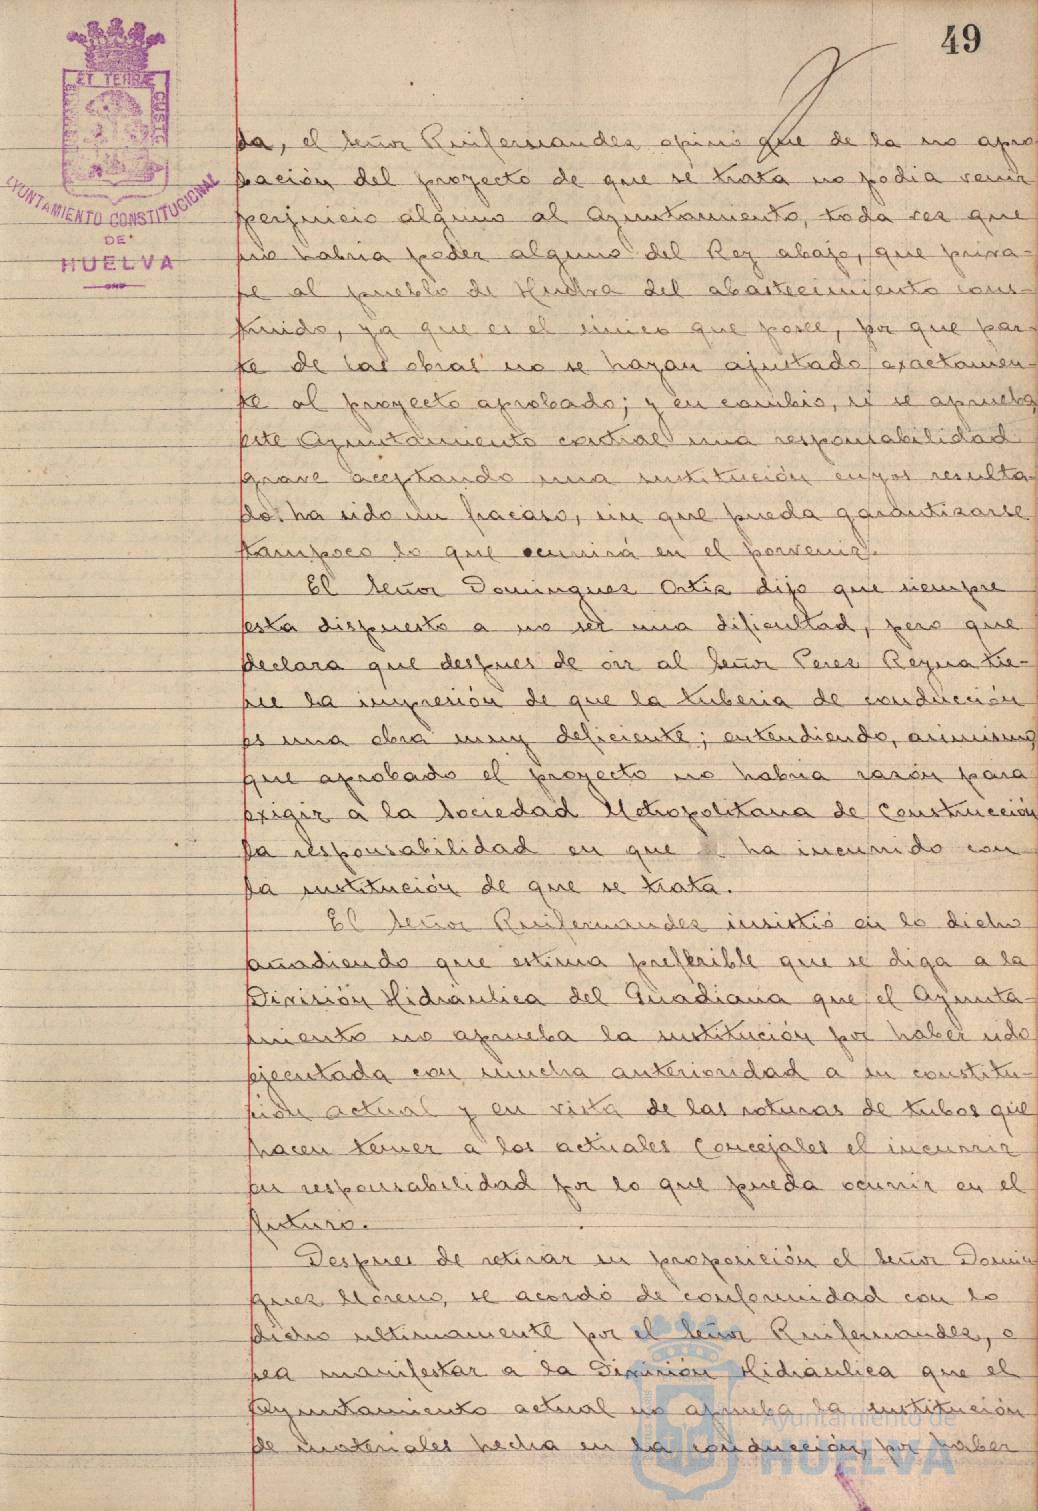 49
ET TERRÆ
CUSTO
AYUNTAMIENTO CONSTITUCIONAL
DE
HUELVA
da, el Señor Ruifernandez opinó que de la no apro
bación del proyecto de que se trata no podia venir
perjuicio alguno al Ayuntamiento, toda vez que
no habria poder alguno del Rey abajo, que priva-
se al pueblo de Huelva del abastecimiento cons-
truido, ya que es el único que posee, por que par-
te de las obras no se hayan ajustado exactamen-
te al proyecto aprobado; y en cambio, si se aprueba,
este Ayuntamiento contrae una responsabilidad
grave aceptando una sustitución cuyos resulta-
do ha sido un fracaso, sin que pueda garantizarse
tampoco lo que ocurrirá en el porvenir.
El Señor Dominguez Ortiz dijo que siempre
esta dispuesto a no ser una dificultad, pero que
declara que despues de oir al Señor Perez Reyna tie-
ne la impresión de que la tuberia de conducción
es una obra muy deficiente; entendiendo, asimismo,
que aprobado el proyecto no habria razón para
exigir a la Sociedad Metropolitana de Construcción
la responsabilidad en que ha incurrido con
la sustitución de que se trata.
El Señor Ruifernandez insistió en lo dicho
añadiendo que estima preferible que se diga a la
División Hidráulica del Guadiana que el Ayunta-
miento no aprueba la sustitución por haber sido
ejecutada con mucha anterioridad a su constitu-
ción actual y en vista de las roturas de tubos que
hacen temer a los actuales Concejales el incurrir
en responsabilidad por lo que pueda ocurrir en el
futuro.
Despues de retirar su proposición el Señor Domin
guez Moreno, se acordó de conformidad con lo
dicho ultimamente por el Señor Ruifernandez, o
sea manifestar a la División Hidráulica que el
Ayuntamiento actual no aprueba la sustitución
de materiales hecha en la conducción, por haber
Ayuntamiento de
HUELVA